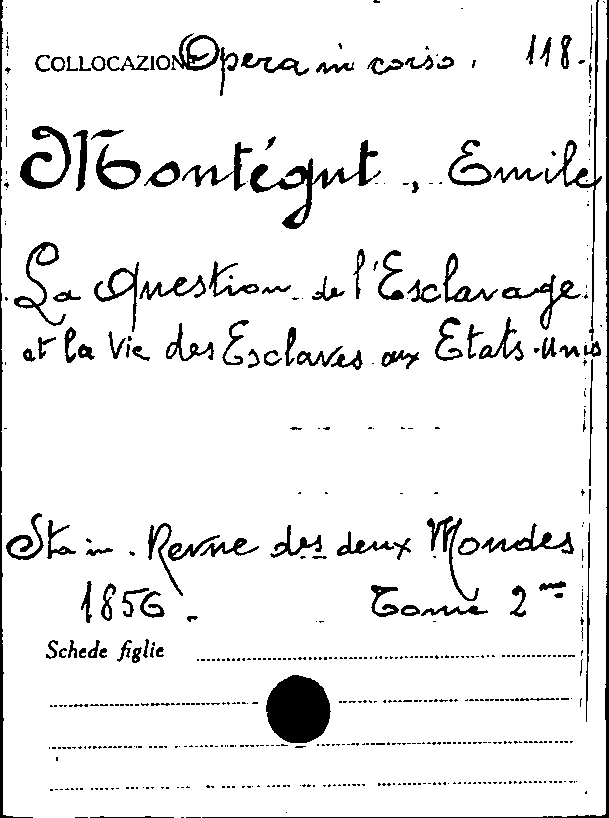 COLLOCAZIONE Opera in corso. 118.
Montégut, Emile
La Question de l'Esclavage
et la Vie des Esclaves aux Etats-Unis
Sta in. Revue des deux Mondes
1856. Tome 2me
Schede figlie